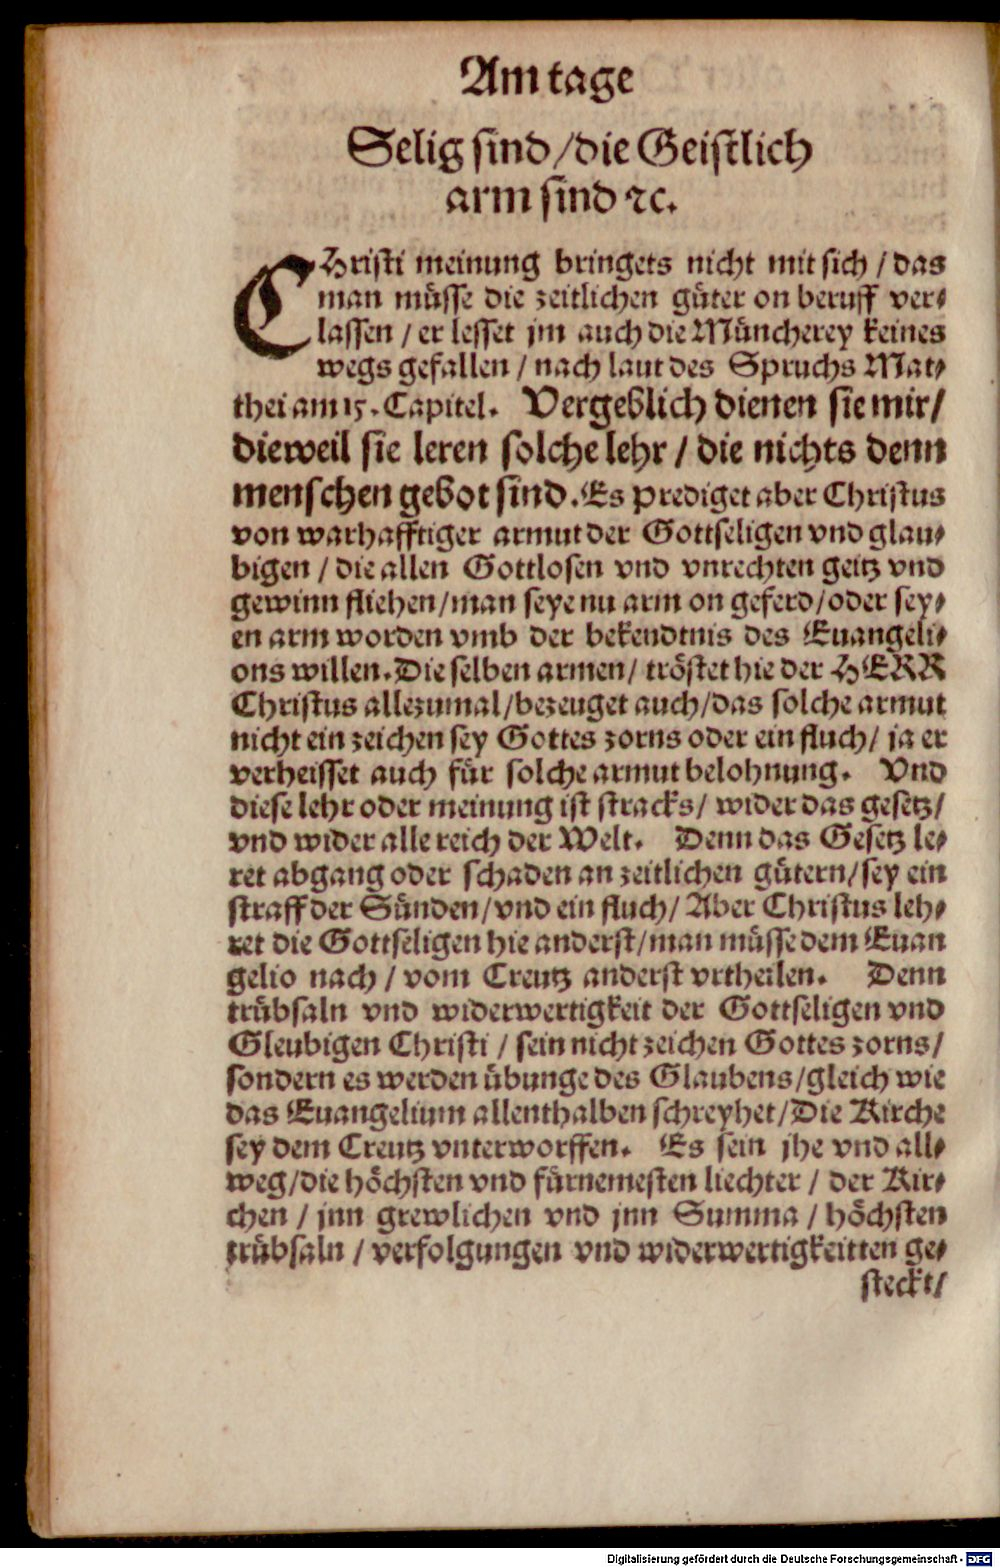 Am tage
Selig sind / die Geistlich
arm sind ꝛc.
CHristi meinung bringets nicht mit sich / das
man müsse die zeitlichen güter on beruff ver⸗
lassen / er lesset jm auch die Müncherey keines
wegs gefallen / nach laut des Spruchs Mat⸗
thei am 15. Capitel. Vergeblich dienen sie mir /
dieweil sie leren solche lehr / die nichts denn
menschen gebot sind. Es prediget aber Christus
von warhafftiger armut der Gottseligen vnd glau⸗
bigen / die allen Gottlosen vnd vnrechten geitz vnd
gewinn fliehen / man seye nu arm on geferd / oder sey⸗
en arm worden vmb der bekendtnis des Euangeli⸗
ons willen. Die selben armen / tröstet hie der HERR
Christus allezumal / bezeuget auch / das solche armut
nicht ein zeichen sey Gottes zorns oder ein fluch / ja er
verheisset auch für solche armut belohnung. Vnd
diese lehr oder meinung ist stracks / wider das gesetz /
vnd wider alle reich der Welt. Denn das Gesetz le⸗
ret abgang oder schaden an zeitlichen gütern / sey ein
straff der Sünden / vnd ein fluch / Aber Christus leh⸗
ret die Gottseligen hie anderst / man müsse dem Euan
gelio nach / vom Creutz anderst vrtheilen. Denn
trübsaln vnd widerwertigkeit der Gottseligen vnd
Gleubigen Christi / sein nicht zeichen Gottes zorns /
sondern es werden übunge des Glaubens / gleich wie
das Euangelium allenthalben schreyhet / Die Kirche
sey dem Creutz vnterworffen. Es sein jhe vnd all⸗
weg / die höchsten vnd fürnemesten liechter / der Kir⸗
chen / jnn grewlichen vnd jnn Summa / höchsten
trübsaln / verfolgungen vnd widerwertigkeitten ge⸗
steckt /
Digitalisierung gefördert durch die Deutsche Forschungsgemeinschaft - DFG